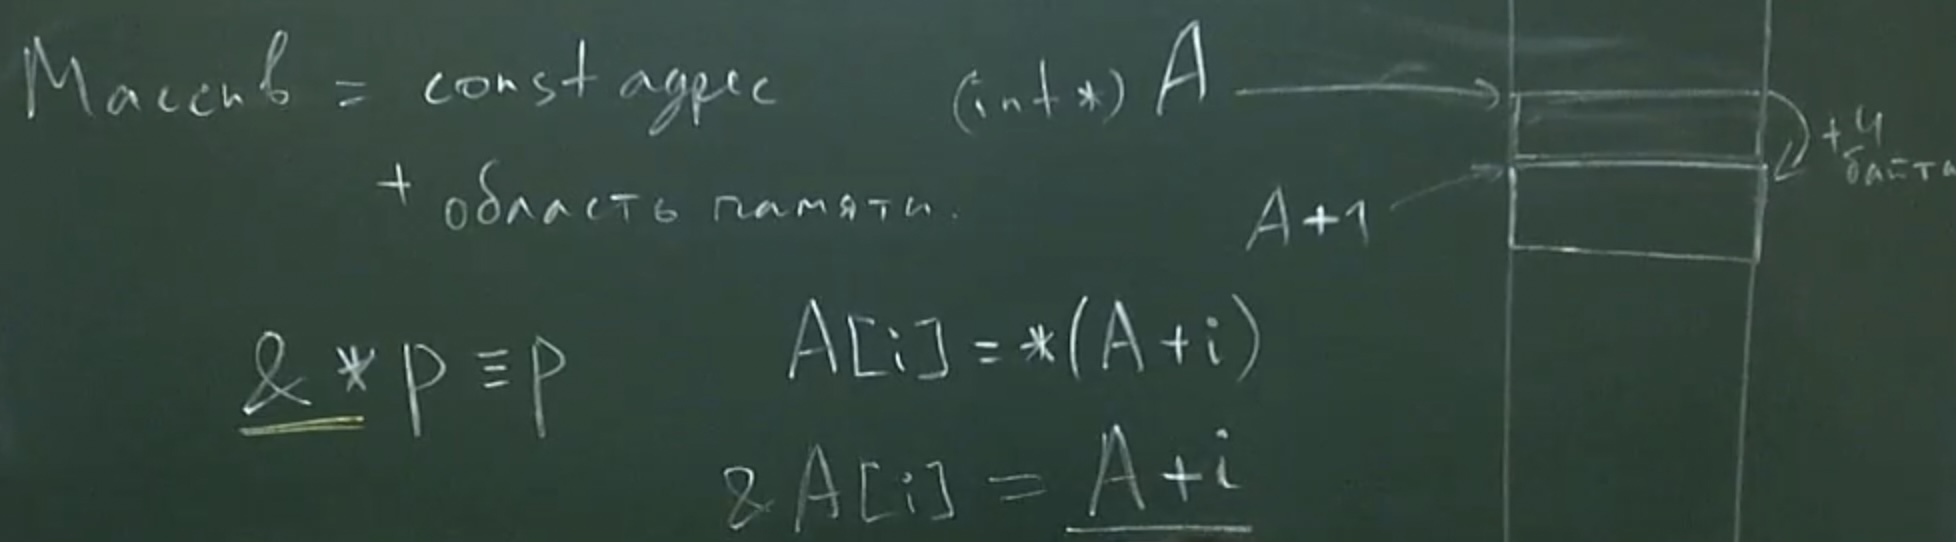 Массив = const адрес
+ область памяти.
(int *) A
+4
байта
A+1
&*p ≡ p
A[i] = *(A+i)
&A[i] = A+i